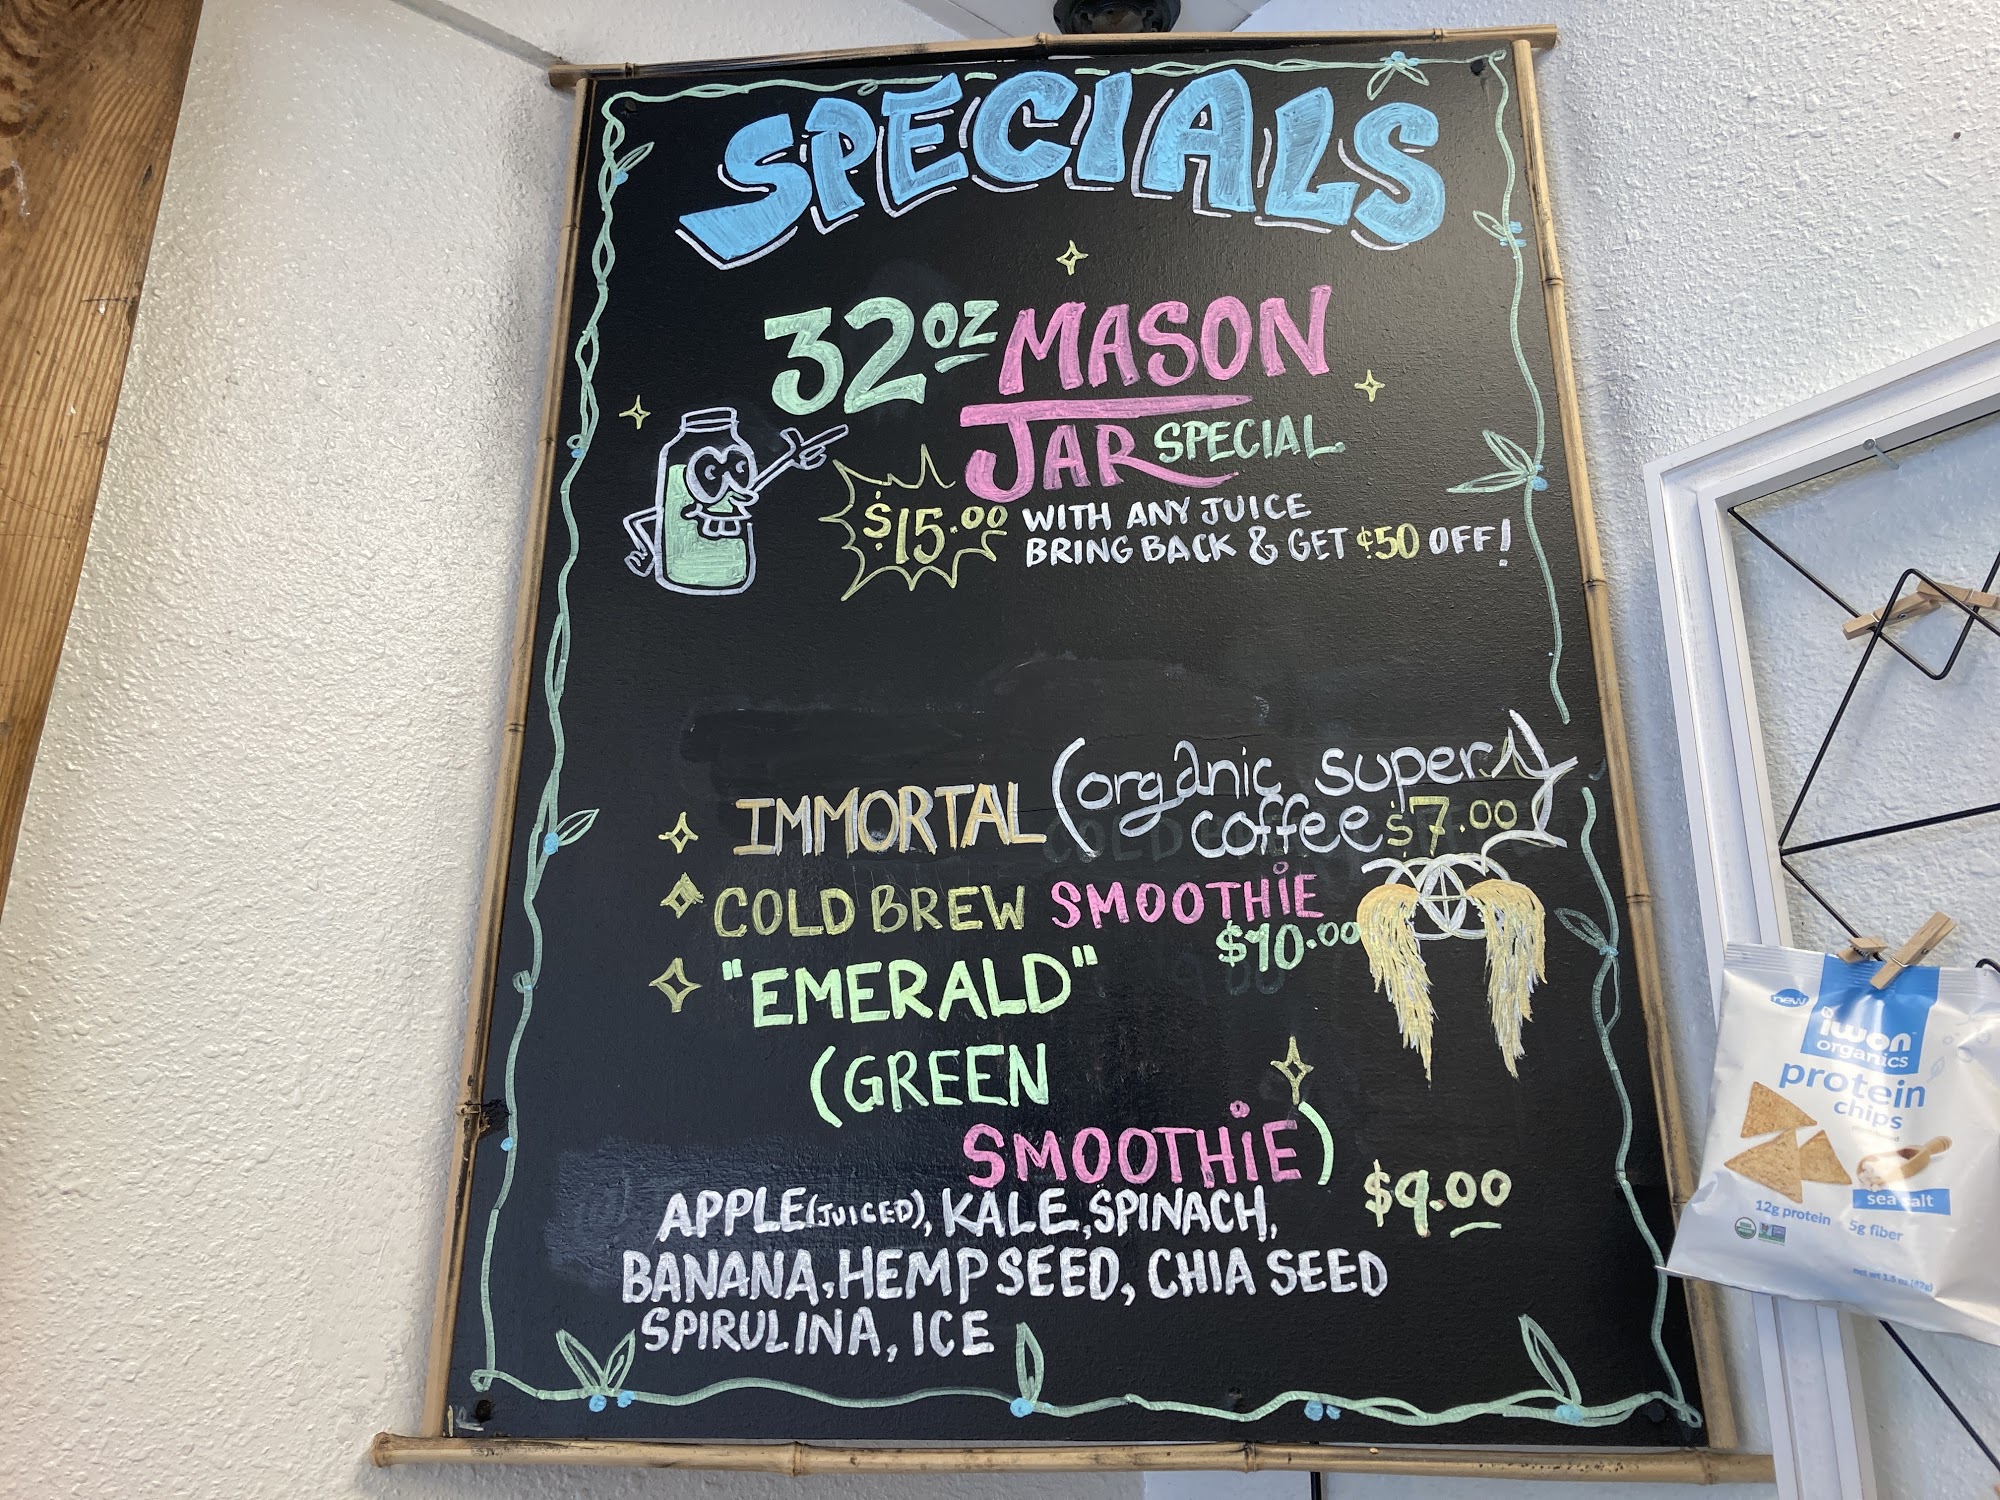 SPECIALS
32oz MASON
JAR SPECIAL
$15.00 WITH ANY JUICE
BRING BACK & GET ¢50 OFF!
IMMORTAL (organic super
coffee $7.00
COLD BREW SMOOTHIE
$10.00
"EMERALD"
(GREEN
SMOOTHIE)
$9.00
APPLE(JUICED), KALE, SPINACH,
BANANA, HEMP SEED, CHIA SEED
SPIRULINA, ICE
new
iwon
organics
protein
chips
sea salt
12g protein 5g fiber
net wt 1.5 oz (42g)